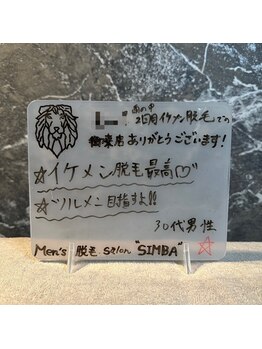 雨の中
2回目イケメン脱毛での
御来店ありがとうございます!
☆イケメン脱毛最高♡
☆ツルメン目指すよ!!
30代男性
Men's 脱毛 salon "SIMBA"